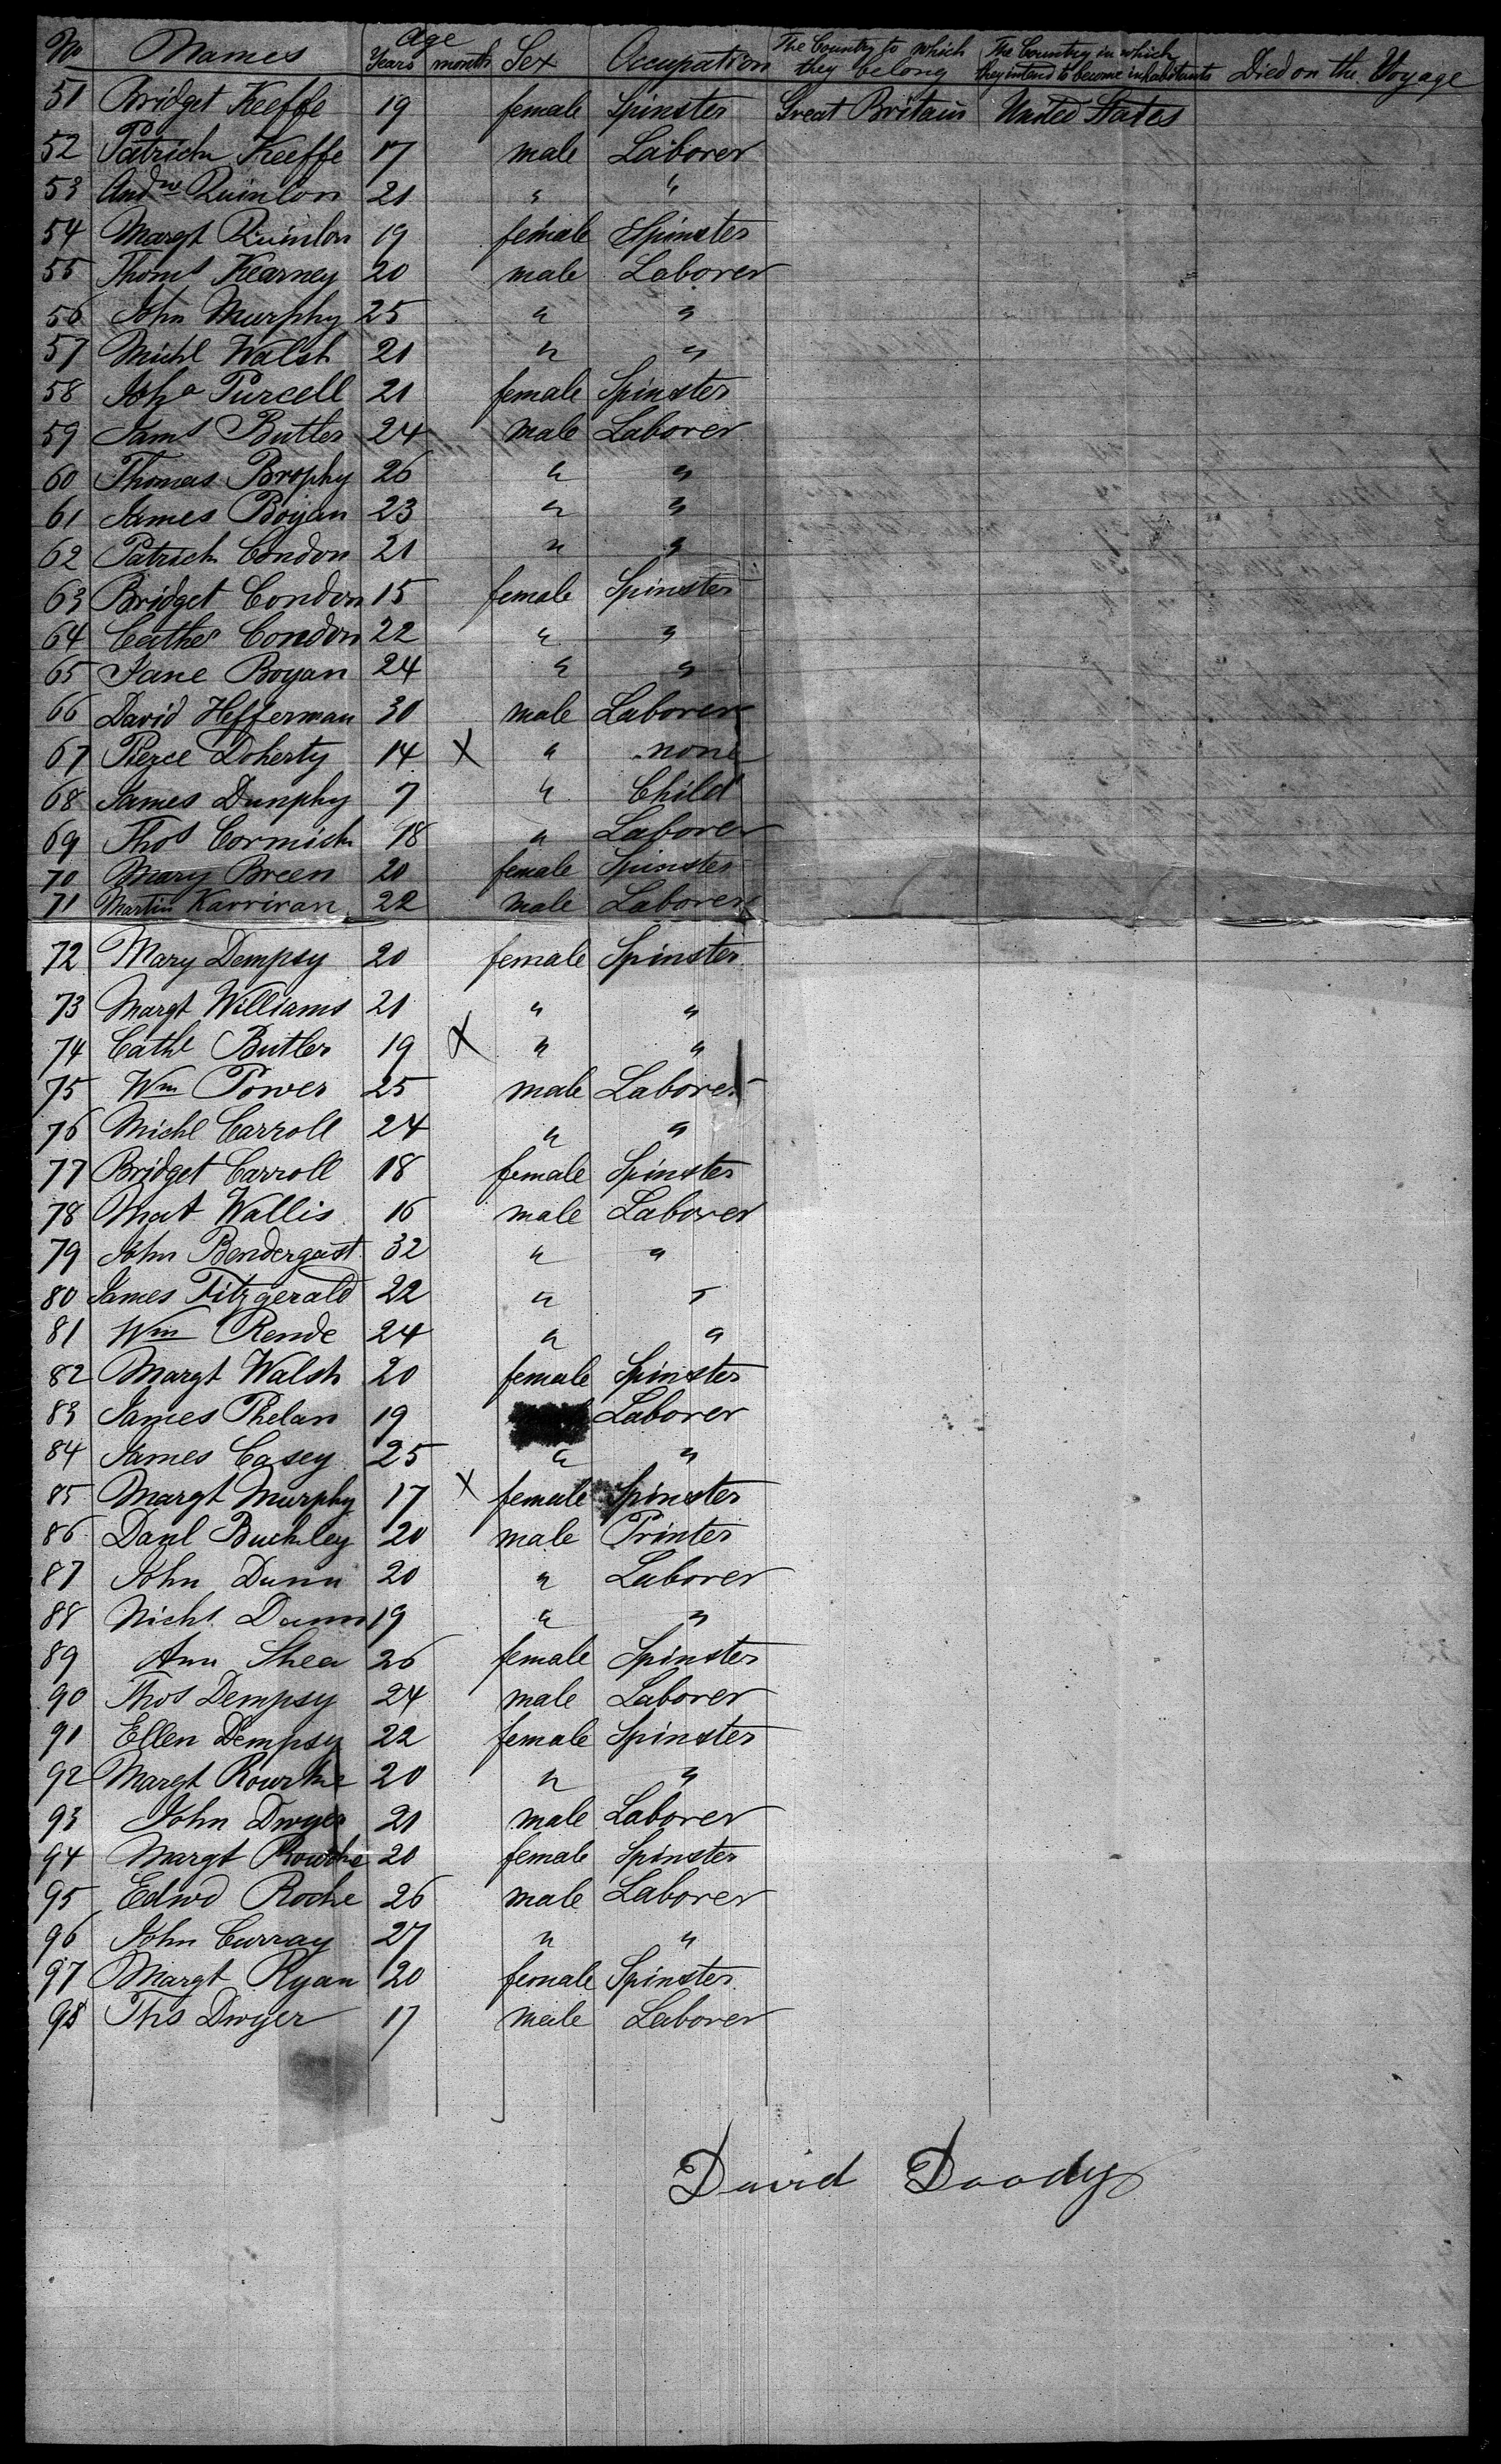 No Names Age Years month Sex Occupation The Country to which they belong The Country in which they intend to become inhabitants Died on the Voyage
51 Bridget Keeffe 19 female Spinster Great Britain United States
52 Patrick Keeffe 17 male Laborer
53 Andw Quinlon 21 " "
54 Margt Quinlon 19 female Spinster
55 Thoms Kearney 20 male Laborer
56 John Murphy 25 " "
57 Michl Walsh 21 " "
58 Joha Purcell 21 female Spinster
59 Jams Butler 24 male Laborer
60 Thomas Brophy 26 " "
61 James Boyan 23 " "
62 Patrick Condon 21 " "
63 Bridget Condon 15 female Spinster
64 Cather Condon 22 " "
65 Jane Boyan 24 " "
66 David Hefferman 30 male Laborer
67 Pierce Doherty 14 X " none
68 James Dunphy 7 " Child
69 Thos Cormick 18 " Laborer
70 Mary Breen 20 female Spinster
71 Martin Karriran 22 male Laborer
72 Mary Dempsy 20 female Spinster
73 Margt Williams 21 " "
74 Cathe Butler 19 X " "
75 Wm Power 25 male Laborer
76 Michl Carroll 24 " "
77 Bridget Carroll 18 female Spinster
78 Mat Wallis 16 male Laborer
79 John Bendergast 32 " "
80 James Fitzgerald 22 " "
81 Wm Rende 24 " "
82 Margt Walsh 20 female Spinster
83 James Phelan 19 Laborer
84 James Casey 25 " "
85 Margt Murphy 17 X female Spinster
86 Danl Buckley 20 male Printer
87 John Dunn 20 " Laborer
88 Nichs Dunn 19 " "
89 Ann Shea 26 female Spinster
90 Thos Dempsy 24 male Laborer
91 Ellen Dempsy 22 female Spinster
92 Margt Rourke 20 " "
93 John Dwyer 21 male Laborer
94 Margt Rourke 20 female Spinster
95 Edwd Roche 26 male Laborer
96 John Curray 27 " "
97 Margt Ryan 20 female Spinster
98 Ths Dwyer 17 male Laborer
David Doody